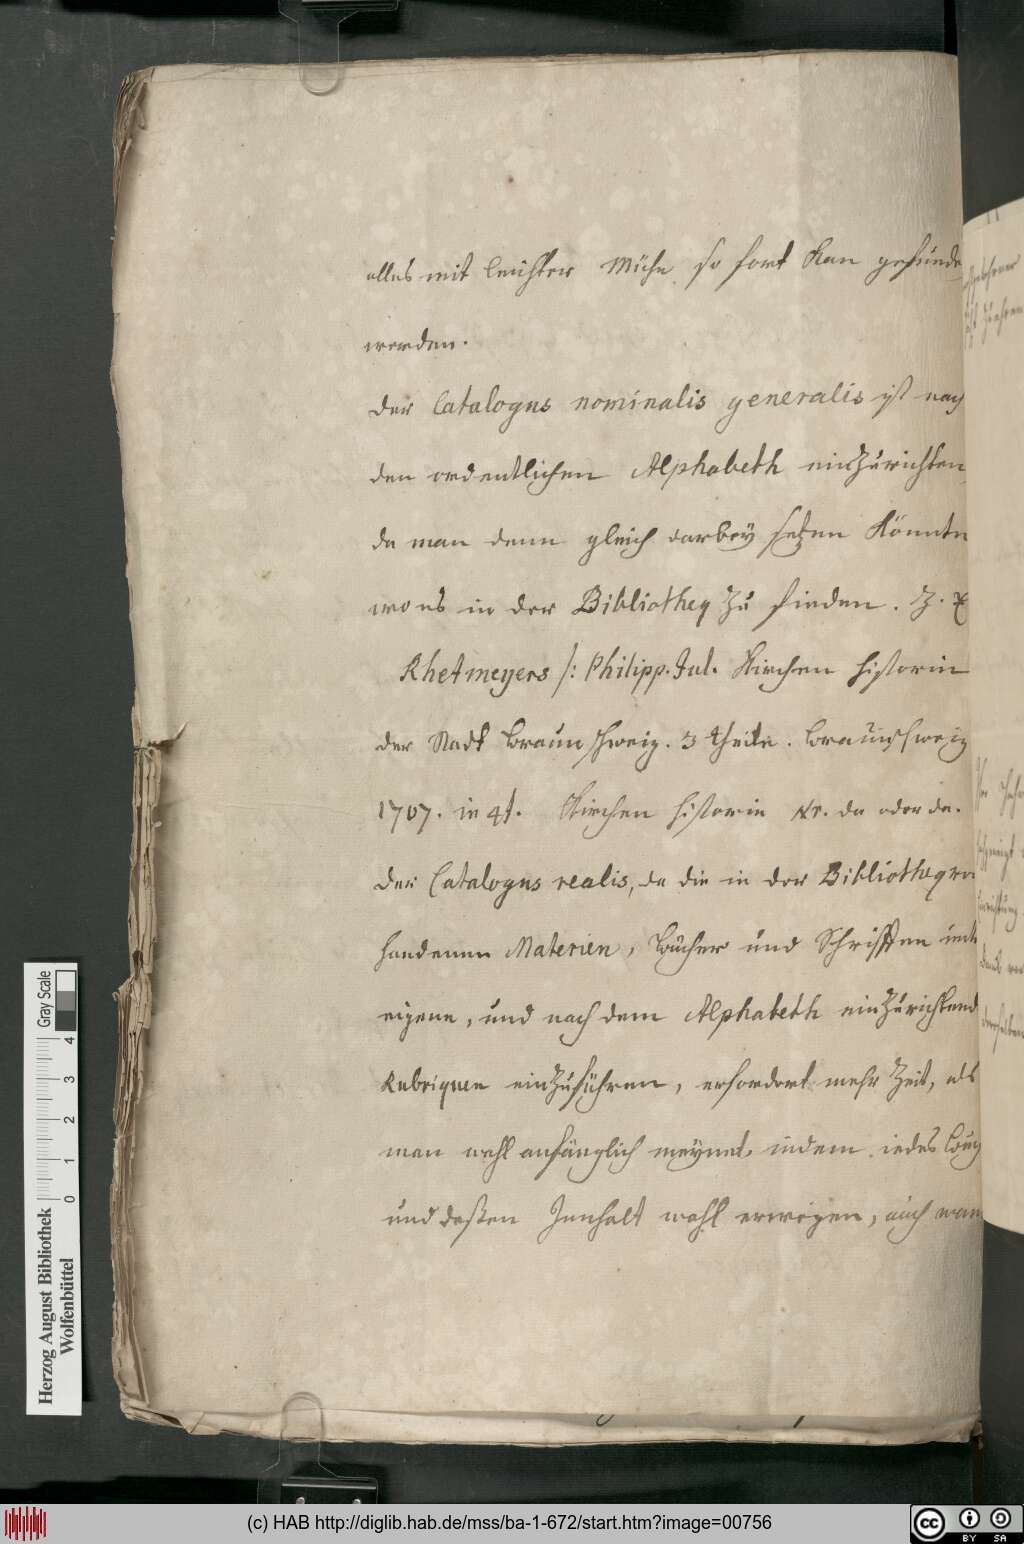 alles mit leichter Mühe so fort kan gefunde
werden.
Der Catalogus nominalis generalis ist nach
den ordentlichen Alphabeth einzurichten,
da man denn gleich darbey setzen könnte
wo es in der Bibliotheq zu finden. Z. E
Rhetmeyers /: Philipp. Jul. Kirchen historie
der Stadt Braunschweig. 3 theile. Braunschweig
1707. in 4t. Kirchen historie &c. da oder da.
Der Catalogus realis, da die in der Bibliotheq vor
handenen Materien, Bücher und Schrifften unter
eigene, und nach dem Alphabeth einzurichtend
Rubriquen einzuführen, erfordert mehr Zeit, als
man wohl anfänglich meynet, indem iedes Buch
und deßen Innhalt wohl erwegen, auch wan
Herzog August Bibliothek
Wolfenbüttel
0 1 2 3 4
Gray Scale
(c) HAB http://diglib.hab.de/mss/ba-1-672/start.htm?image=00756
cc
BY SA